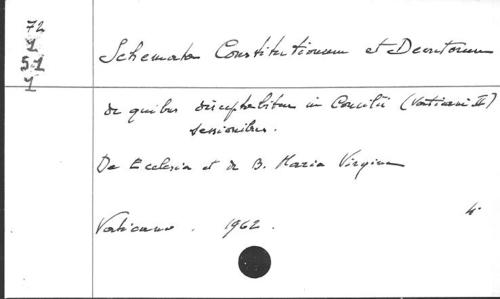 72
1
5.1
1
Schemata Constitutionum et Decretorum
de quibus disceptabitur in Concilii (Vaticani II)
sessionibus.
De Ecclesia et de B. Maria Virgine
Vaticano. 1962.
4°